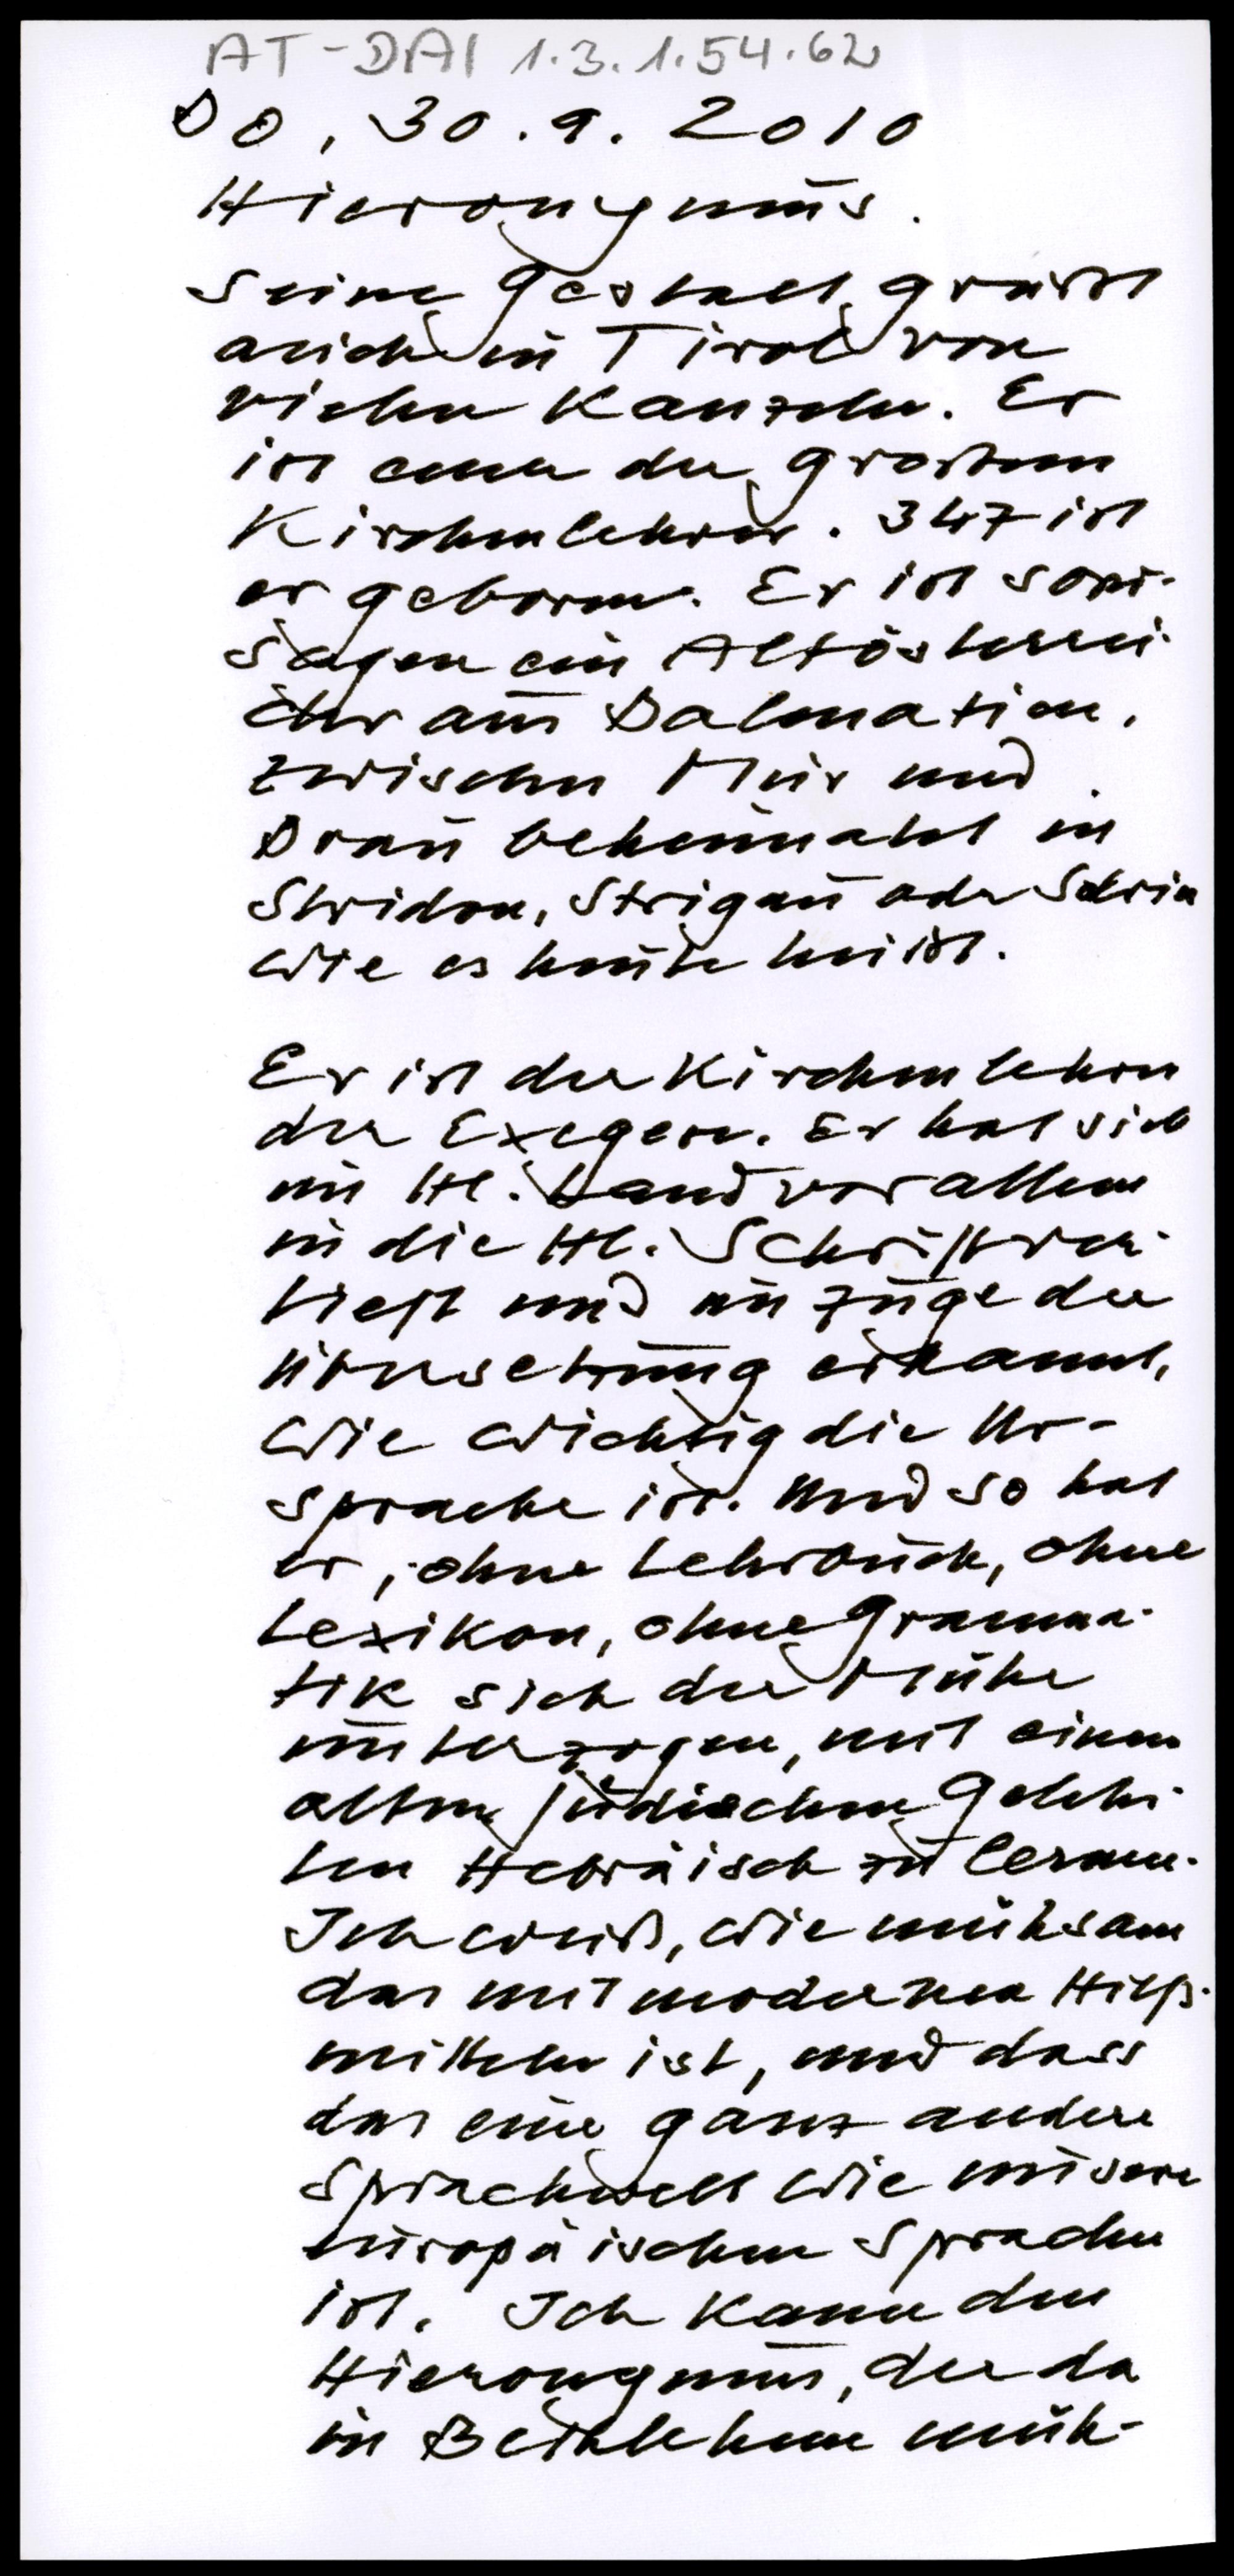 AT-DAI 1.3.1.54.62
DO, 30.9.2010
Hieronymus.
Seine Gestalt grüßt
auch in Tirol von
vielen Kanzeln. Er
ist einer der großen
Kirchenlehrer. 347 ist
er geboren. Er ist sozu-
sagen ein Altösterrei-
cher aus Dalmatien,
zwischen Mur und
Drau beheimatet in
Stridon, Strigau oder
wie es heute heißt.
Er ist der Kirchenlehrer
der Exegese. Er hat sich
im Hl. Land vor allem
in die Hl. Schrift ver-
tieft und im Zuge der
Übersetzung erkannt,
wie wichtig die Ur-
sprache ist. Und so hat
er, ohne Lehrbuch, ohne
Lexikon, ohne Gramma-
tik sich der Mühe
unterzogen, mit einem
alten jüdischen Gelehr-
ten Hebräisch zu lernen.
Ich weiß, wie mühsam
das mit modernen Hilfs-
mitteln ist, und dass
das eine ganz andere
Sprachwelt wie unsere
europäischen Sprachen
ist. Ich kann den
Hieronymus, der da
in Bethlehem müh-